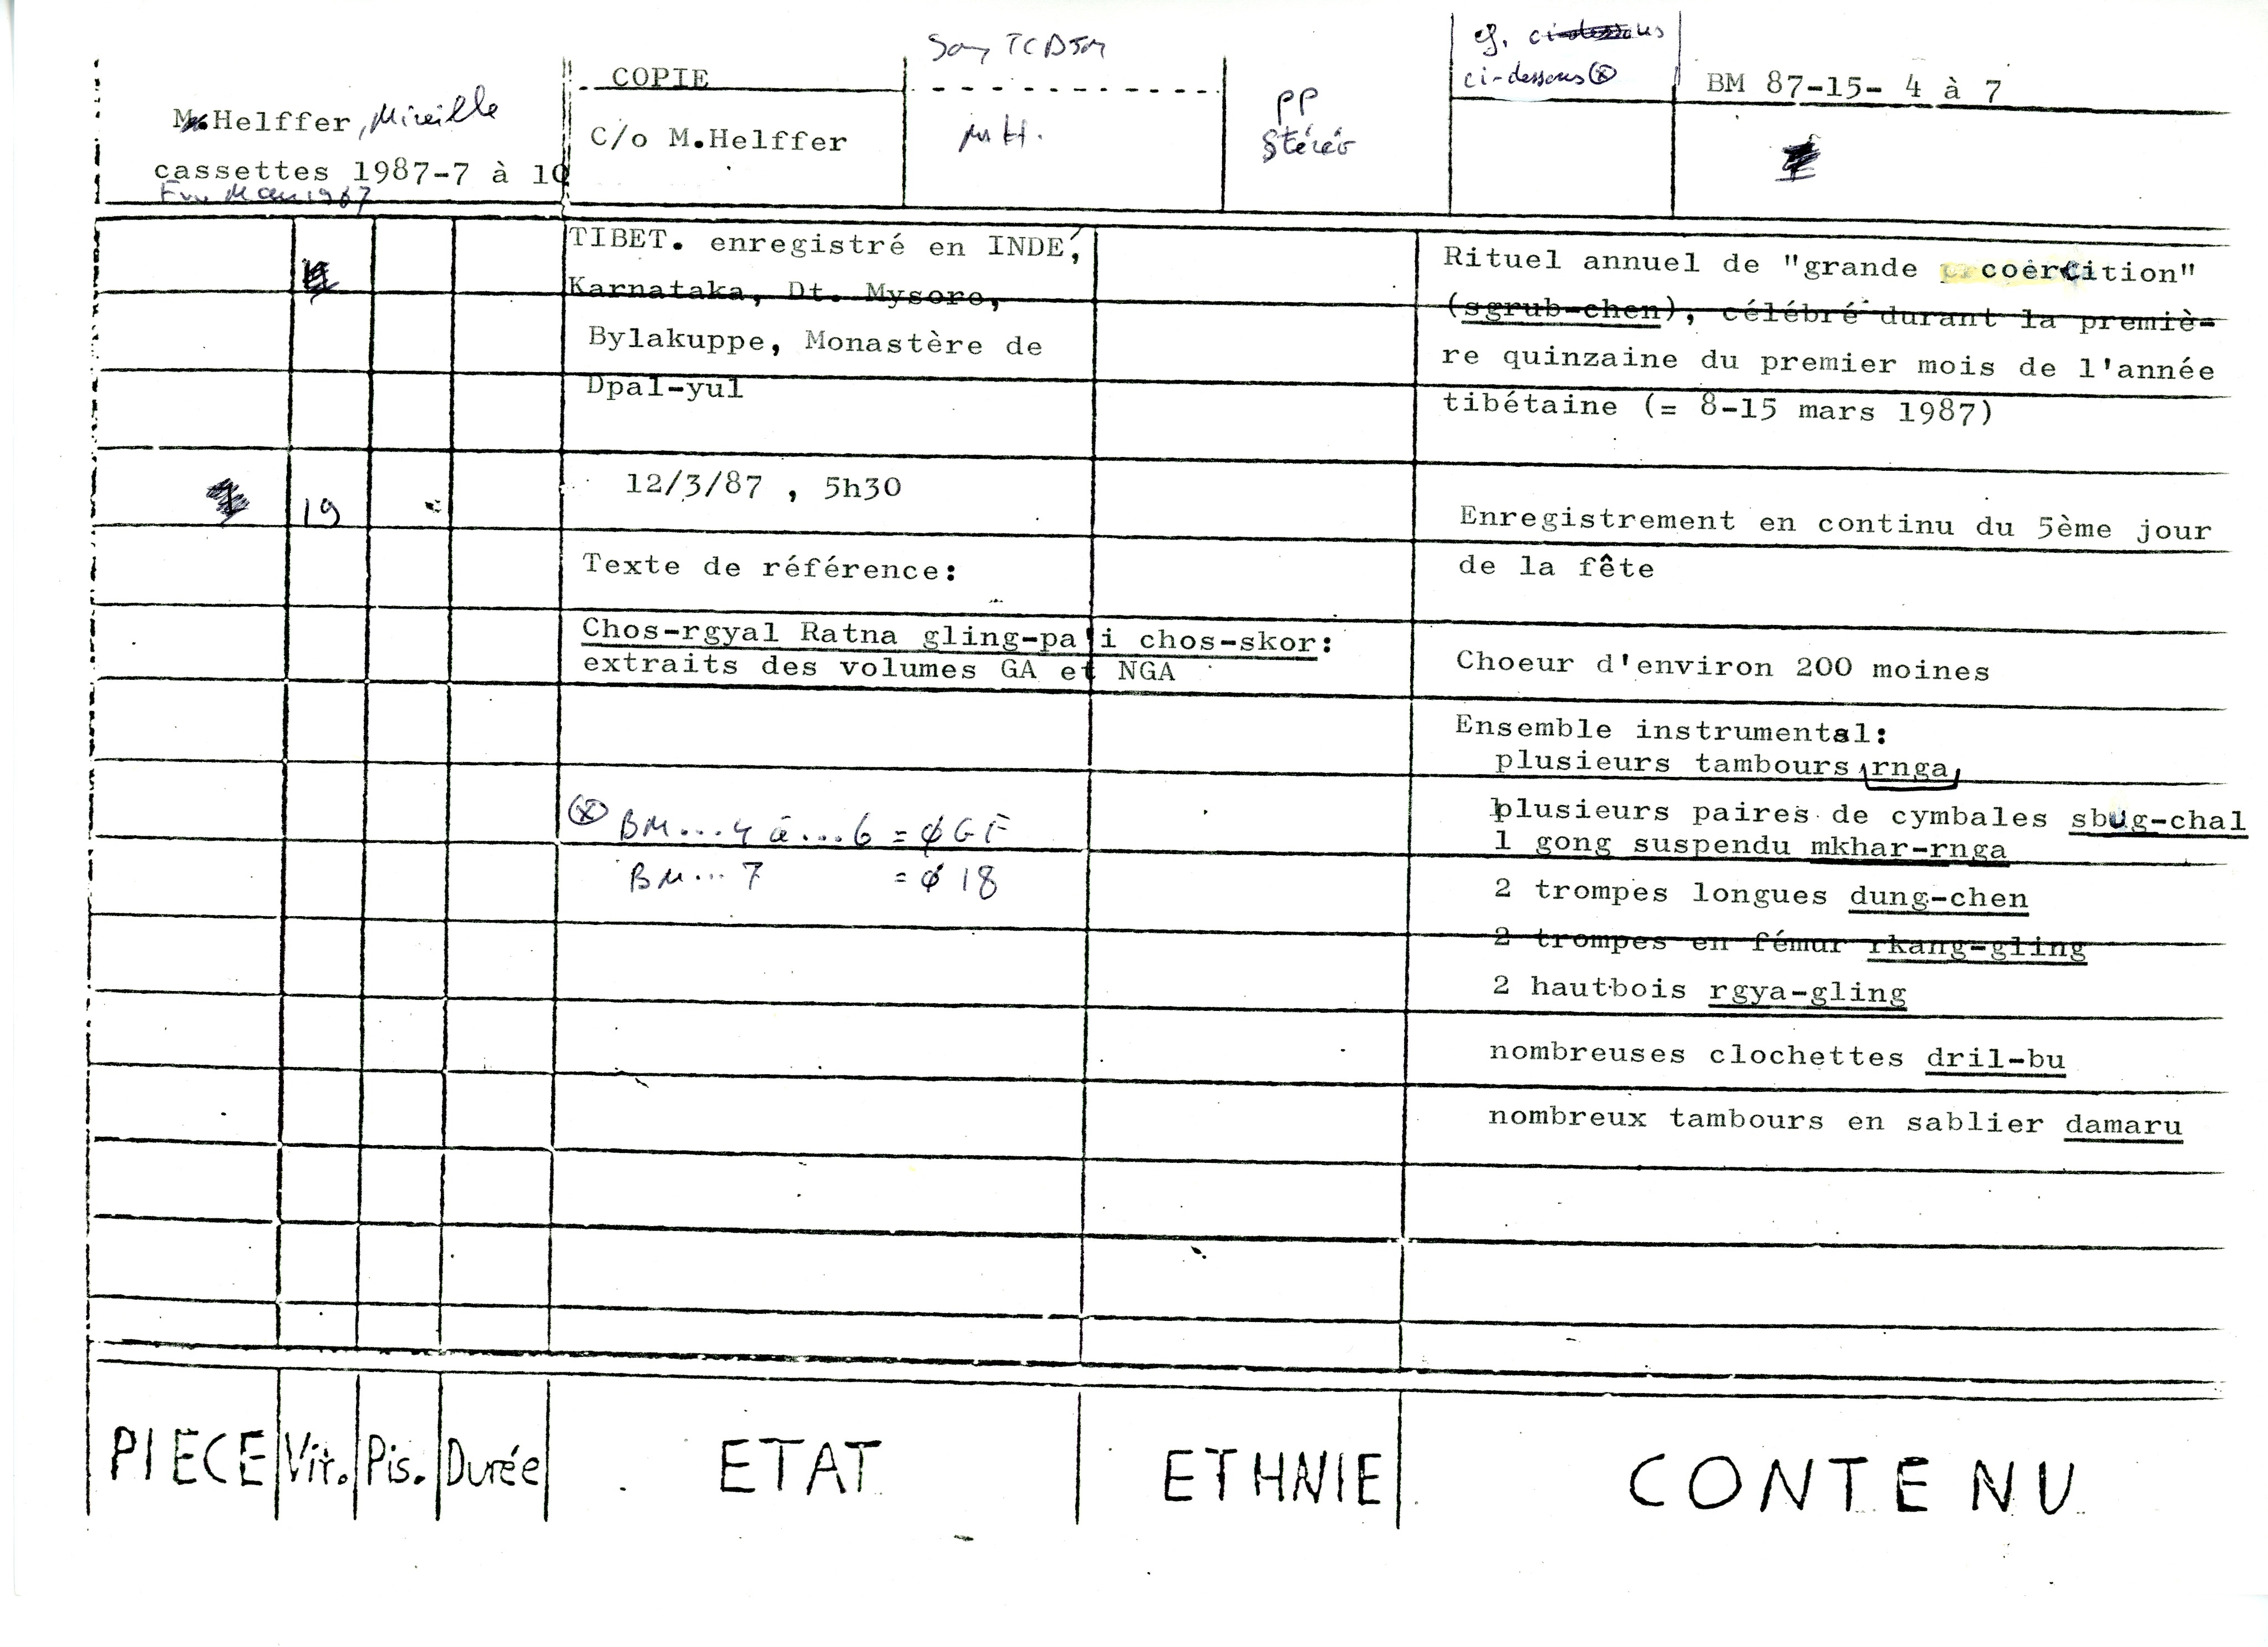 M. Helffer, Mireille
cassettes 1987-7 à 10
COPIE
C/o M.Helffer
Sony TCD5M
MH.
PP
Stéréo
cf.
ci-dessous ⊗
BM 87-15- 4 à 7
TIBET. enregistré en INDE,
Karnataka, Dt. Mysore,
Bylakuppe, Monastère de
Dpal-yul
Rituel annuel de "grande coercition"
(sgrub-chen), célébré durant la premiè-
re quinzaine du premier mois de l'année
tibétaine (= 8-15 mars 1987)
19
12/3/87 , 5h30
Enregistrement en continu du 5ème jour
de la fête
Texte de référence:
Chos-rgyal Ratna gling-pa'i chos-skor:
extraits des volumes GA et NGA
Choeur d'environ 200 moines
Ensemble instrumental:
plusieurs tambours rnga
plusieurs paires de cymbales sbug-chal
1 gong suspendu mkhar-rnga
2 trompes longues dung-chen
2 trompes en fémur rkang-gling
2 hautbois rgya-gling
nombreuses clochettes dril-bu
nombreux tambours en sablier damaru
⊗ BM...4 à...6 = ϕ GF
BM... 7 = ϕ 18
PIECE Vit. Pis. Durée ETAT ETHNIE CONTENU